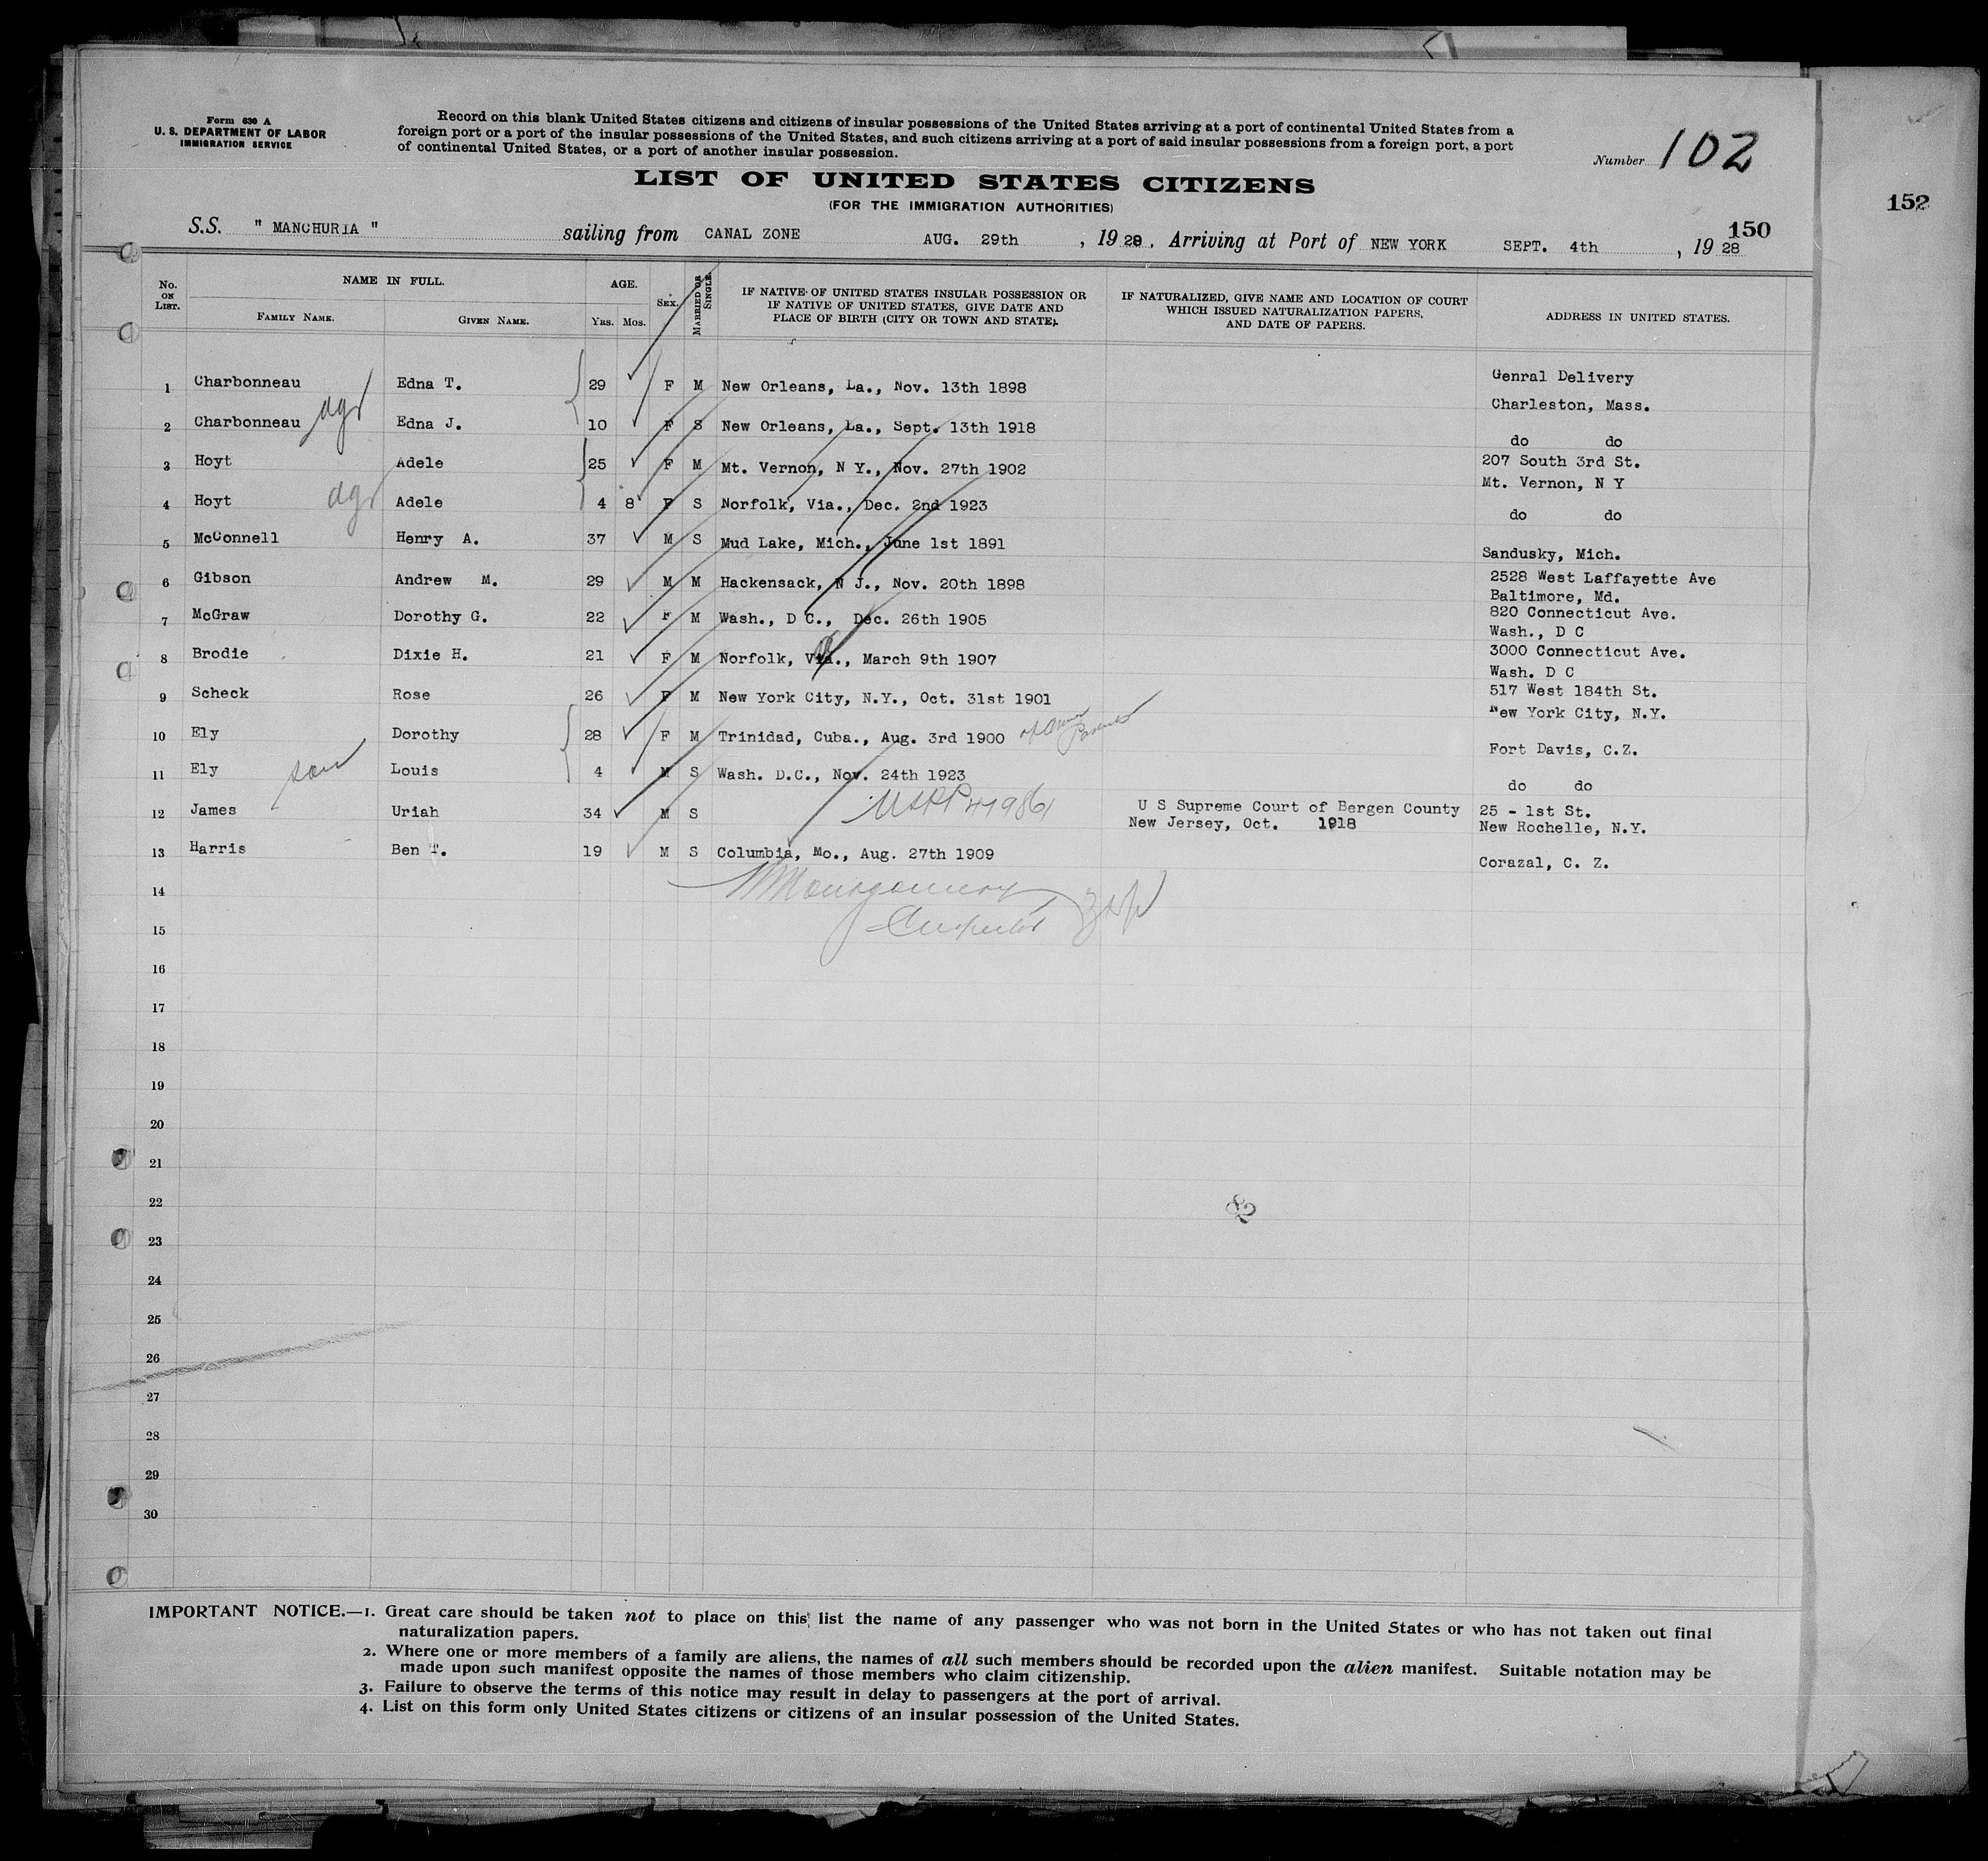 Form 630 A
U. S. DEPARTMENT OF LABOR
IMMIGRATION SERVICE
Record on this blank United States citizens and citizens of insular possessions of the United States arriving at a port of continental United States from a
foreign port or a port of the insular possessions of the United States, and such citizens arriving at a port of said insular possessions from a foreign port, a port
of continental United States, or a port of another insular possession.
Number 102
LIST OF UNITED STATES CITIZENS
(FOR THE IMMIGRATION AUTHORITIES)
152
150
S.S. " MANCHURIA " sailing from CANAL ZONE AUG. 29th , 19 28 , Arriving at Port of NEW YORK SEPT. 4th , 19 28
No. ON LIST. NAME IN FULL. FAMILY NAME. GIVEN NAME. AGE. YRS. MOS. SEX. MARRIED OR SINGLE. IF NATIVE OF UNITED STATES INSULAR POSSESSION OR IF NATIVE OF UNITED STATES, GIVE DATE AND PLACE OF BIRTH (CITY OR TOWN AND STATE). IF NATURALIZED, GIVE NAME AND LOCATION OF COURT WHICH ISSUED NATURALIZATION PAPERS, AND DATE OF PAPERS. ADDRESS IN UNITED STATES.
1 Charbonneau Edna T. 29 F M New Orleans, La., Nov. 13th 1898 Genral Delivery
Charleston, Mass.
2 Charbonneau Edna J. 10 F S New Orleans, La., Sept. 13th 1918 do do
3 Hoyt Adele 25 F M Mt. Vernon, N Y., Nov. 27th 1902 207 South 3rd St.
Mt. Vernon, N Y
4 Hoyt Adele 4 8 F S Norfolk, Via., Dec. 2nd 1923 do do
5 McConnell Henry A. 37 M S Mud Lake, Mich., June 1st 1891 Sandusky, Mich.
6 Gibson Andrew M. 29 M M Hackensack, N J., Nov. 20th 1898 2528 West Laffayette Ave
Baltimore, Md.
7 McGraw Dorothy G. 22 F M Wash., D C., Dec. 26th 1905 820 Connecticut Ave.
Wash., D C
8 Brodie Dixie H. 21 F M Norfolk, Via., March 9th 1907 3000 Connecticut Ave.
Wash. D C
9 Scheck Rose 26 F M New York City, N.Y., Oct. 31st 1901 517 West 184th St.
New York City, N.Y.
10 Ely Dorothy 28 F M Trinidad, Cuba., Aug. 3rd 1900 Fort Davis, C.Z.
11 Ely son Louis 4 M S Wash. D.C., Nov. 24th 1923 do do
12 James Uriah 34 M S U S Supreme Court of Bergen County 25 - 1st St.
New Jersey, Oct. 1918 New Rochelle, N.Y.
13 Harris Ben T. 19 M S Columbia, Mo., Aug. 27th 1909 Corazal, C. Z.
14 Montgomery
15
16
17
18
19
20
21
22
23
24
25
26
27
28
29
30
IMPORTANT NOTICE.—1. Great care should be taken not to place on this list the name of any passenger who was not born in the United States or who has not taken out final
naturalization papers.
2. Where one or more members of a family are aliens, the names of all such members should be recorded upon the alien manifest. Suitable notation may be
made upon such manifest opposite the names of those members who claim citizenship.
3. Failure to observe the terms of this notice may result in delay to passengers at the port of arrival.
4. List on this form only United States citizens or citizens of an insular possession of the United States.